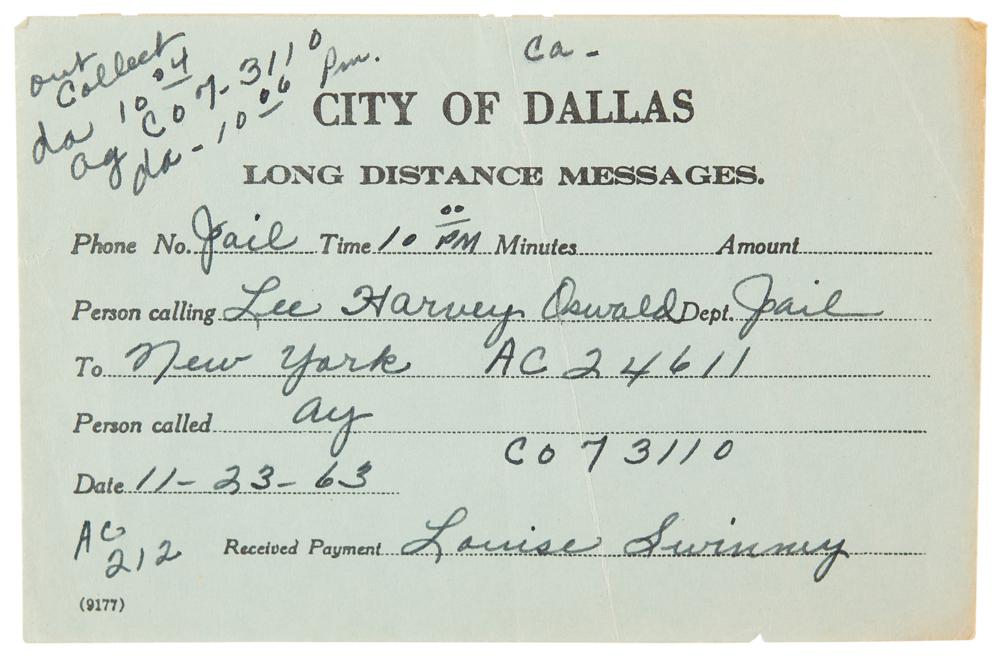 out
collect
da 10 04
ag CO 7-3110
da - 10 06 Pm.
Ca -
CITY OF DALLAS
LONG DISTANCE MESSAGES.
Phone No. Jail Time 10 00 PM Minutes Amount
Person calling Lee Harvey Oswald Dept. Jail
To New York AC 24611
Person called ay
CO 7 3110
Date 11-23-63
AC
212
Received Payment Louise Swinney
(9177)